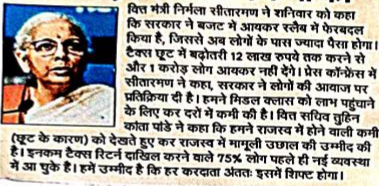 वित्त मंत्री निर्मला सीतारमण ने शनिवार को कहा
कि सरकार ने बजट में आयकर स्लैब में फेरबदल
किया है, जिससे अब लोगों के पास ज्यादा पैसा होगा।
टैक्स छूट में बढ़ोतरी 12 लाख रुपये तक करने से
और 1 करोड़ लोग आयकर नहीं देंगे। प्रेस कॉन्फ्रेंस में
सीतारमण ने कहा, सरकार ने लोगों की आवाज पर
प्रतिक्रिया दी है। हमने मिडल क्लास को लाभ पहुंचाने
के लिए कर दरों में कमी की है। वित्त सचिव तुहिन
कांता पांडे ने कहा कि हमने राजस्व में होने वाली कमी
(छूट के कारण) को देखते हुए कर राजस्व में मामूली उछाल की उम्मीद की
है। इनकम टैक्स रिटर्न दाखिल करने वाले 75% लोग पहले ही नई व्यवस्था
में आ चुके है। हमें उम्मीद है कि हर करदाता अंततः इसमें शिफ्ट होगा।